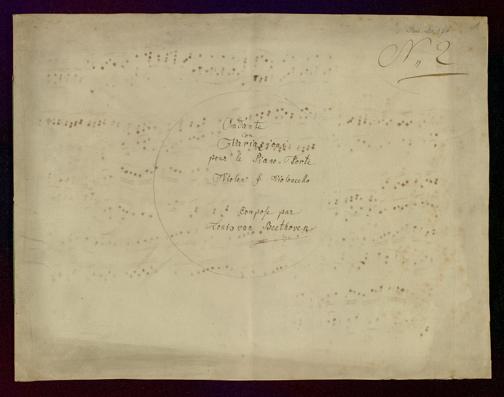 N.º 2
Andante
con
Variazioni
pour le Piano-Forte
Violon & Violoncello
composé par
Louis van Beethoven